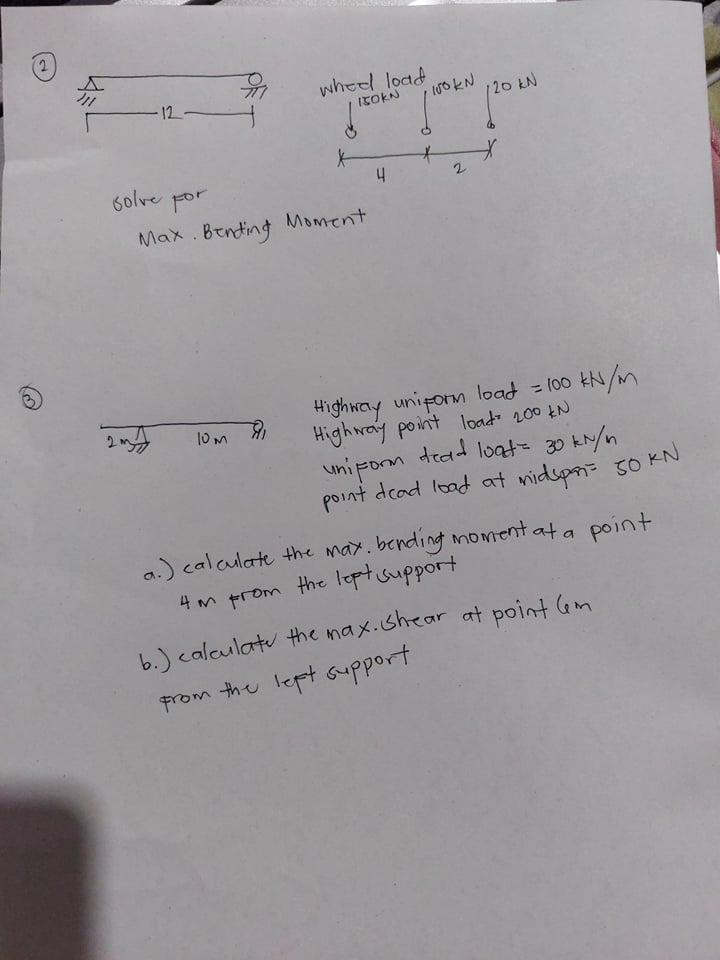 2
12
wheel load
150KN
100KN
120 KN
4
2
solve for
Max. Bending Moment
3
2 m
10 m
Highway uniform load = 100 KN/m
Highway point load = 200 KN
uniform dead load = 30 KN/m
point dead load at midspan = 50 KN
a.) calculate the max. bending moment at a point
4 m from the left support
b.) calculate the max. shear at point 6m
from the left support